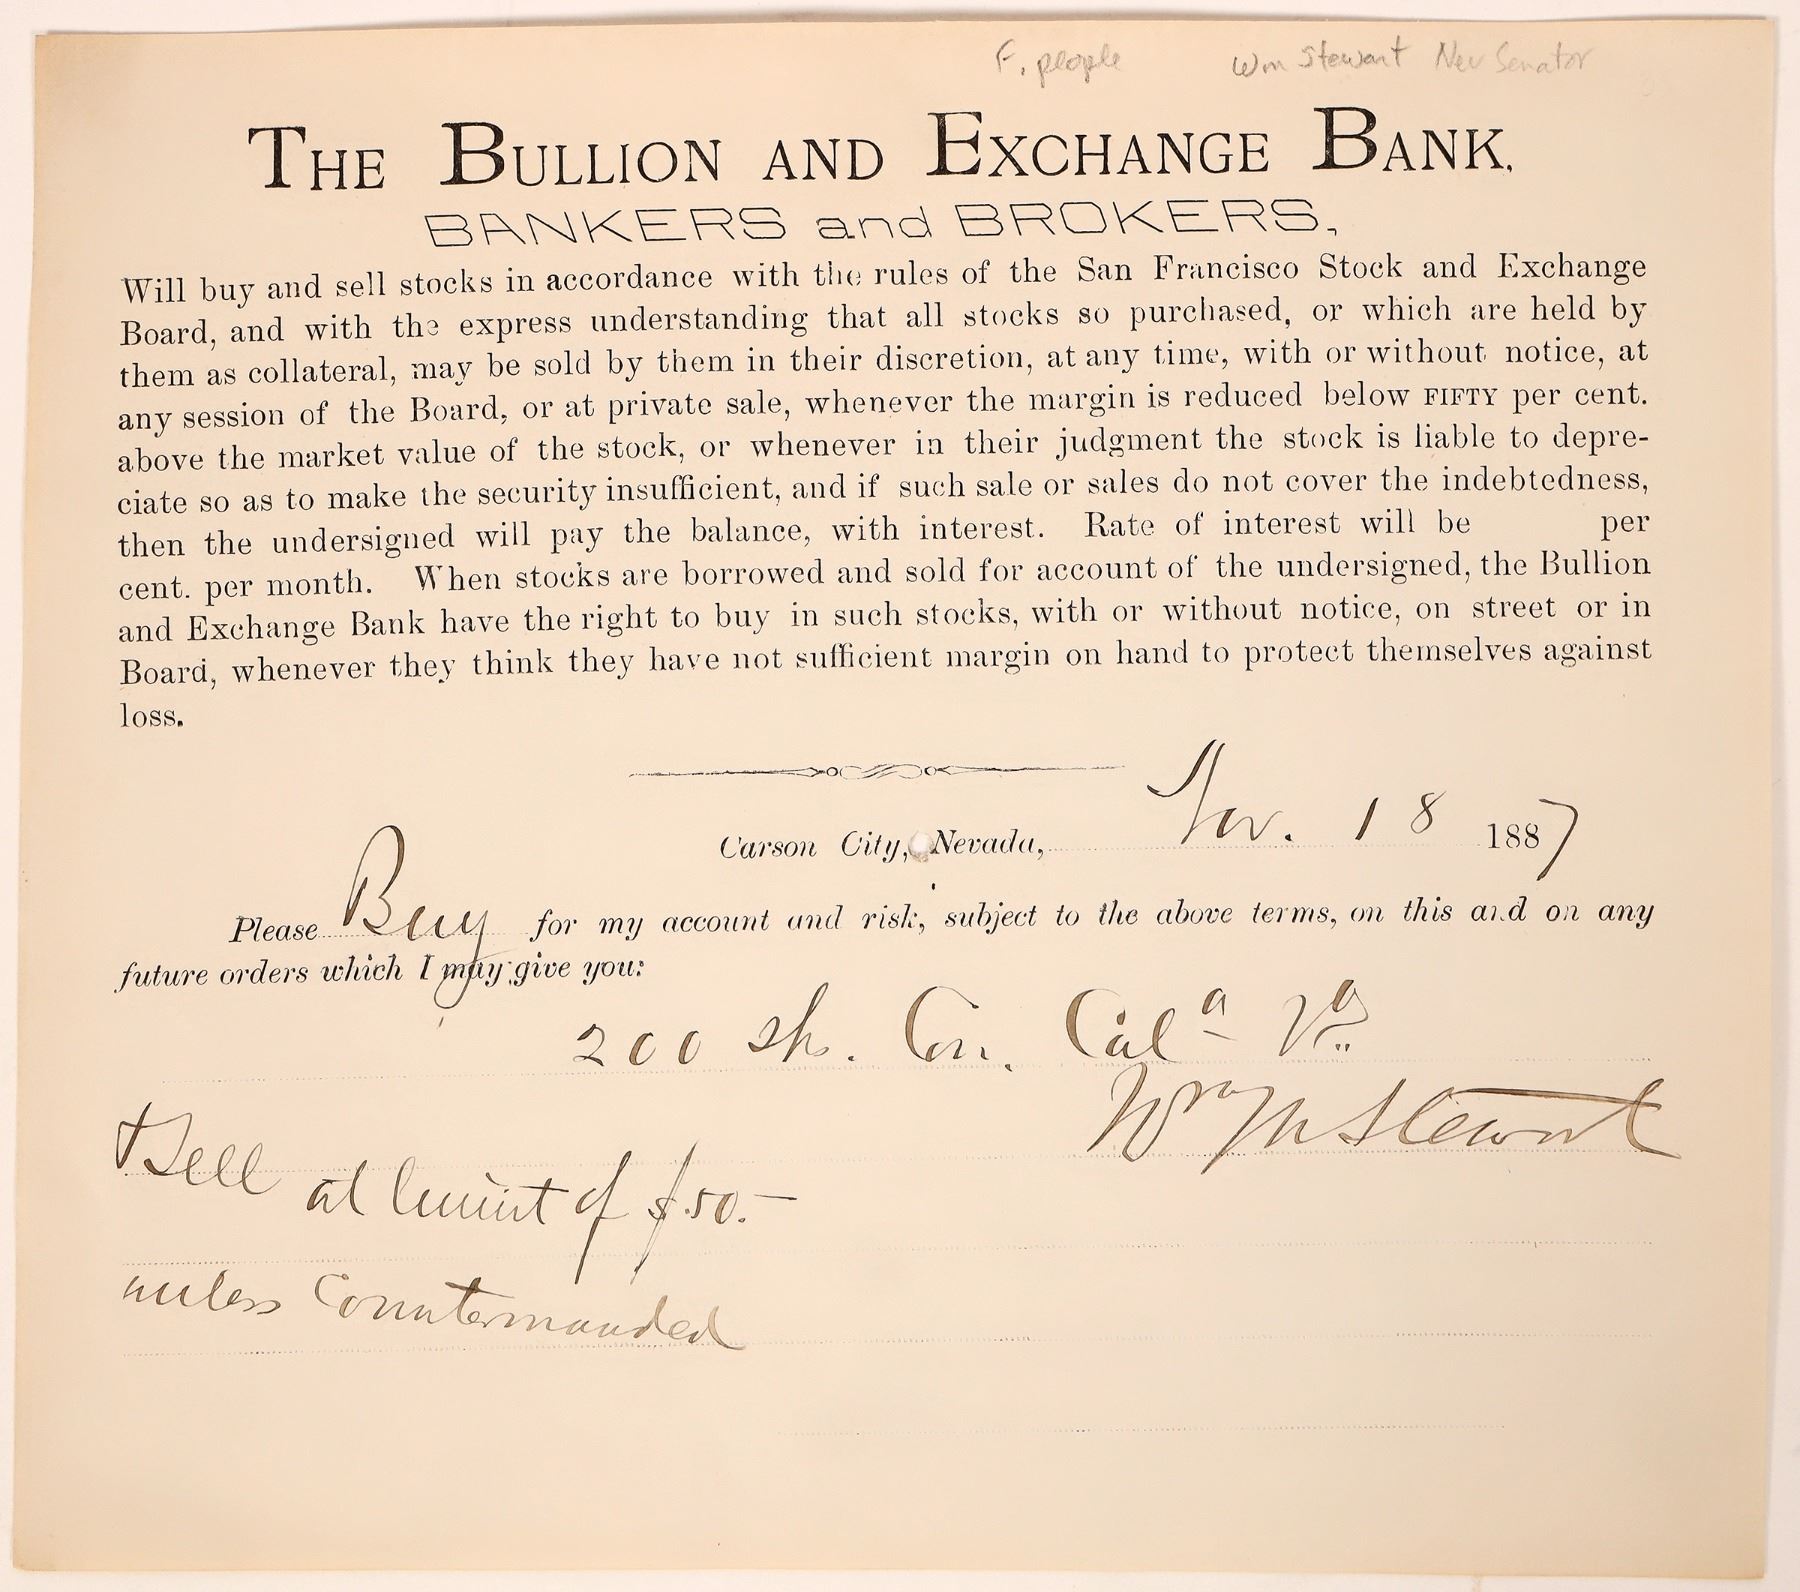 F. people Wm Stewart Nev Senator
THE BULLION AND EXCHANGE BANK,
BANKERS and BROKERS,
Will buy and sell stocks in accordance with the rules of the San Francisco Stock and Exchange
Board, and with the express understanding that all stocks so purchased, or which are held by
them as collateral, may be sold by them in their discretion, at any time, with or without notice, at
any session of the Board, or at private sale, whenever the margin is reduced below FIFTY per cent.
above the market value of the stock, or whenever in their judgment the stock is liable to depre-
ciate so as to make the security insufficient, and if such sale or sales do not cover the indebtedness,
then the undersigned will pay the balance, with interest. Rate of interest will be per
cent. per month. When stocks are borrowed and sold for account of the undersigned, the Bullion
and Exchange Bank have the right to buy in such stocks, with or without notice, on street or in
Board, whenever they think they have not sufficient margin on hand to protect themselves against
loss.
Carson City, Nevada, Nov. 18 1887
Please Buy for my account and risk, subject to the above terms, on this and on any
future orders which I may give you:
200 sh. Con. Cala Va
Wm M Stewart
Sell at limit of $50.-
unless Countermanded